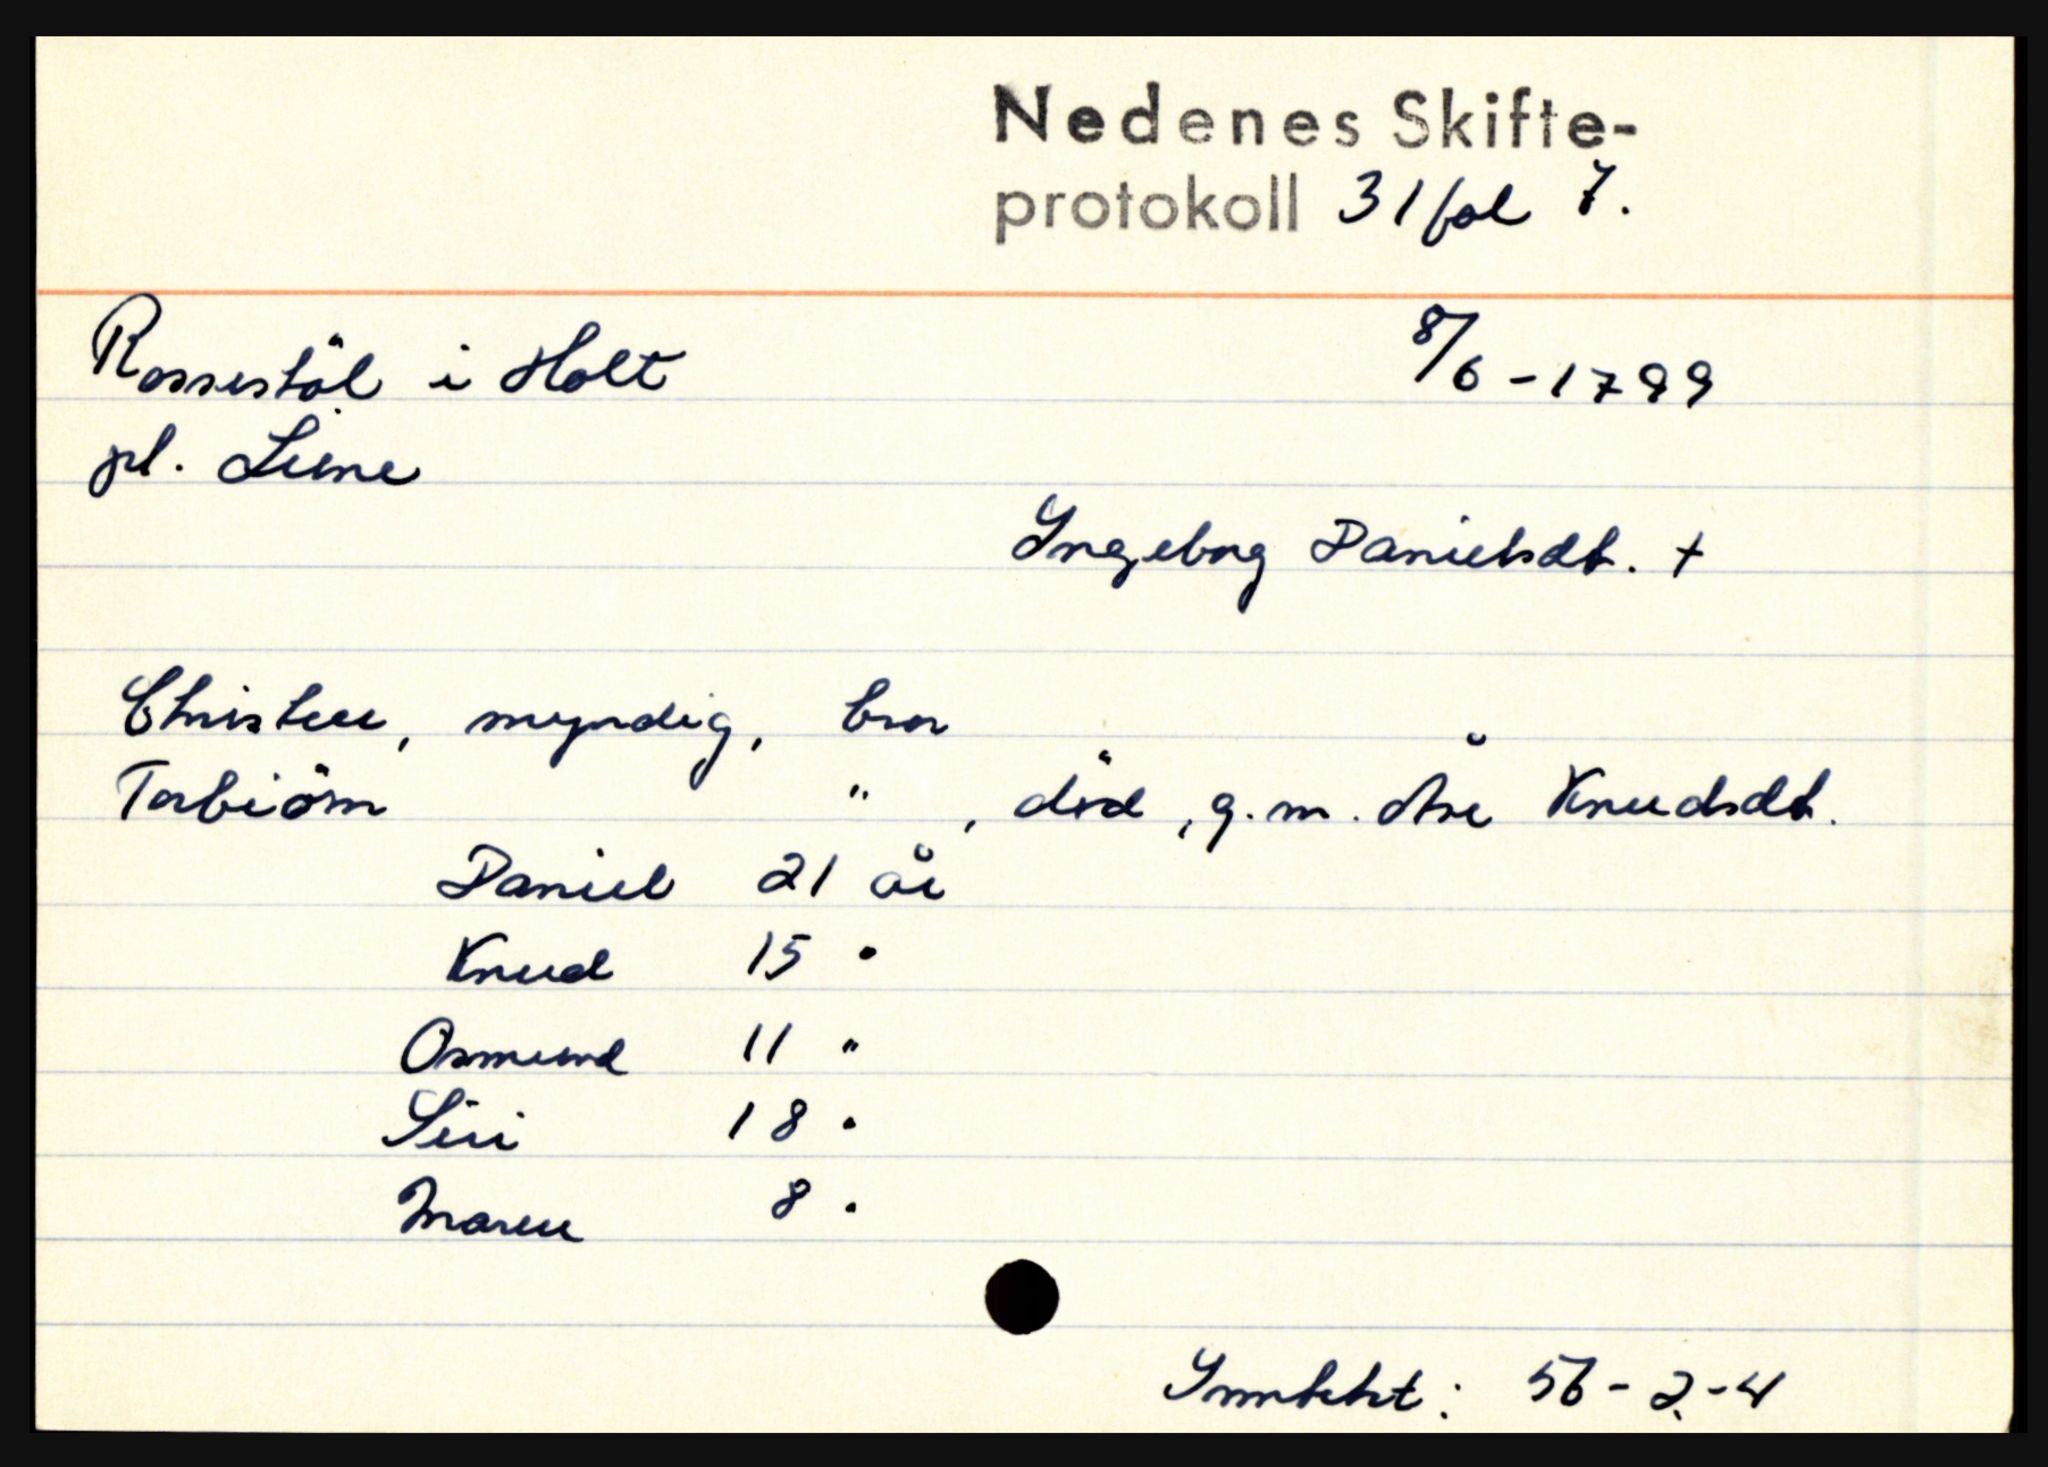 Nedenes Skifte-
protokoll 31 fol 7.
Rossestöl i Holt
8/6 - 1799
pl. Lüne
Ingeborg Danielsdt. +
Christen, myndig, bror
Torbiörn " , död, g.m. Åse Knudsdt.
Daniel 21 år
Knud 15 "
Osmund 11 "
Siri 18 "
Maren 8 "
Inntekt: 56-2-4